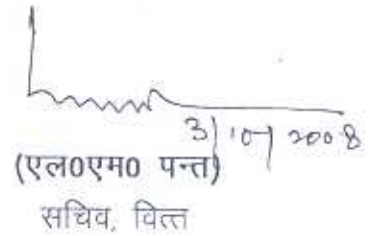 3/10/2008
(एल0एम0 पन्त)
सचिव, वित्त